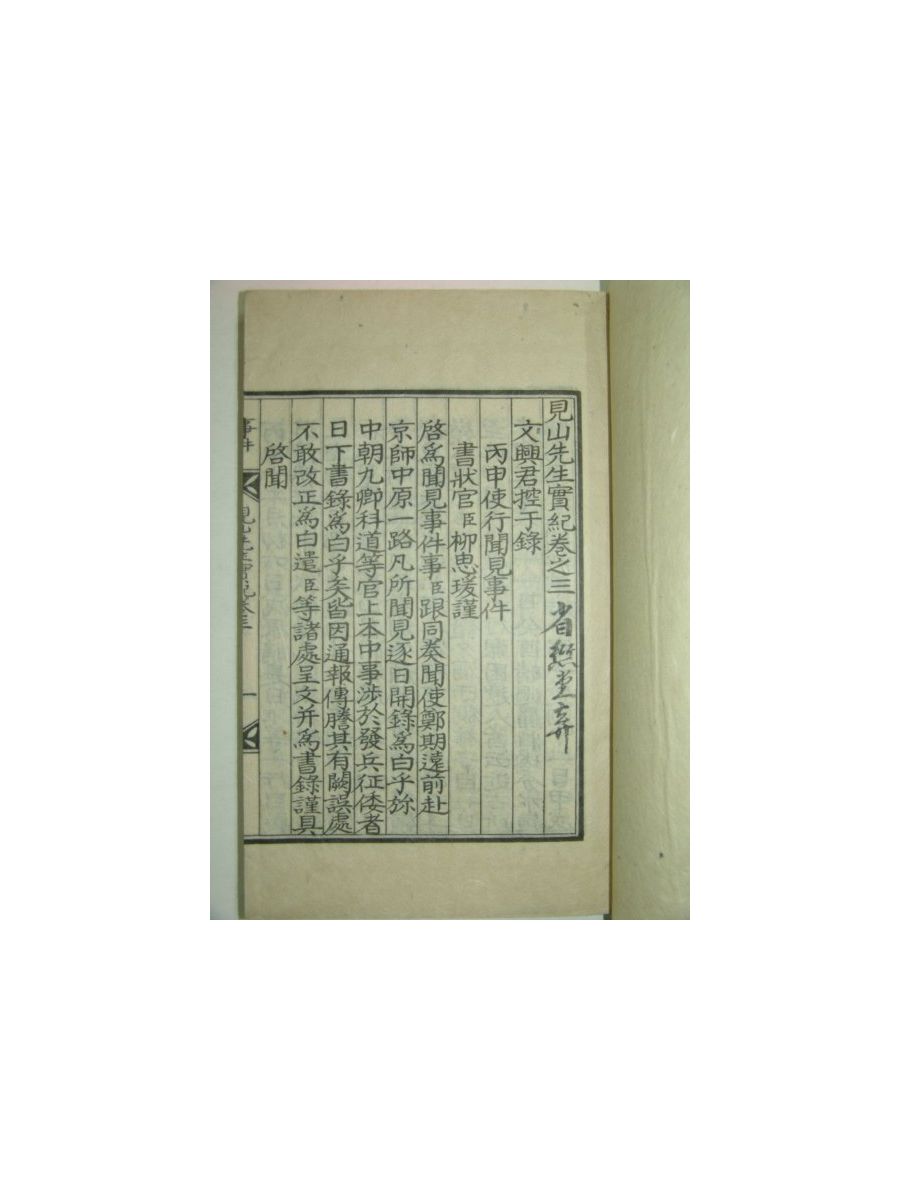 見山先生實紀卷之三
文興君控于錄
丙申使行聞見事件
書狀官臣柳思瑗謹
啓爲聞見事件事臣跟同奏聞使鄭期遠前赴
京師中原一路凡所聞見逐日開錄爲白乎㫆
中朝九卿科道等官上本中事涉於發兵征倭者
日下書錄爲白乎矣皆因通報傳謄其有闕誤處
不敢改正爲白遣臣等諸處呈文并爲書錄謹具
啓聞
事件
見山先生實紀卷三
一